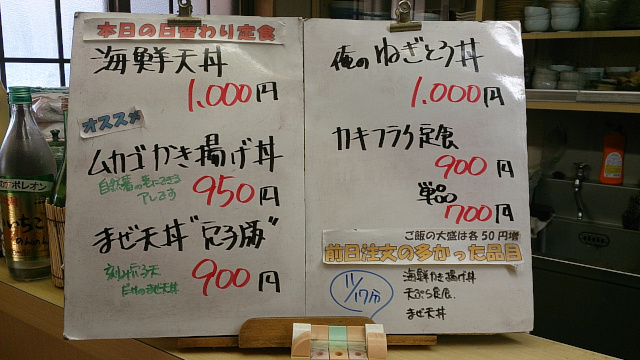 本日の日替わり定食
海鮮天丼
1,000円
オススメ
ムカゴかき揚げ丼
950円
アレです
まぜ天丼
900円
だけのまぜ天丼
俺のねぎとろ丼
1,000円
カキフライ定食
900円
単品
700円
ご飯の大盛は各50円増
前日注文の多かった品目
11/17分
海鮮かき揚げ丼
天ぷら定食
まぜ天丼